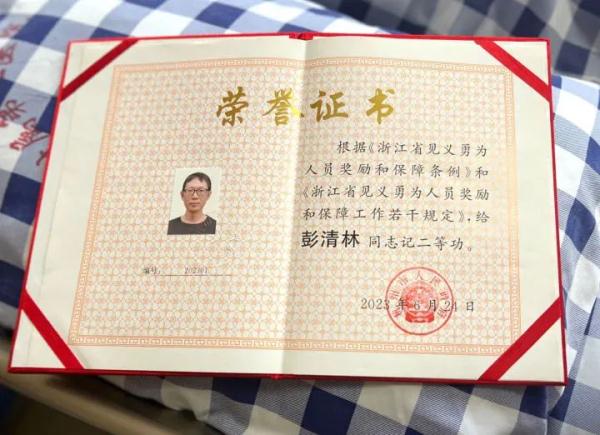 荣誉证书
编号：202301
根据《浙江省见义勇为
人员奖励和保障条例》和
《浙江省见义勇为人员奖励
和保障工作若干规定》，给
彭清林 同志记二等功。
2023年6月24日